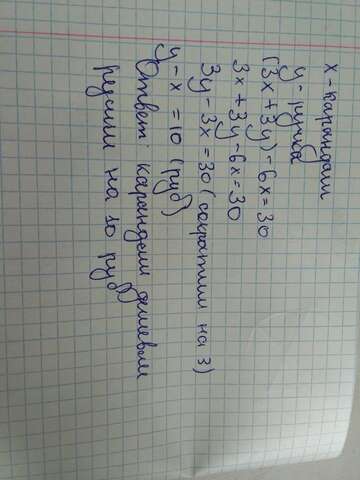 x - карандаш
y - ручка
(3x + 3y) - 6x = 30
3x + 3y - 6x = 30
3y - 3x = 30 (сократим на 3)
y - x = 10 (руб)
Ответ: карандаш дешевле
ручки на 10 руб